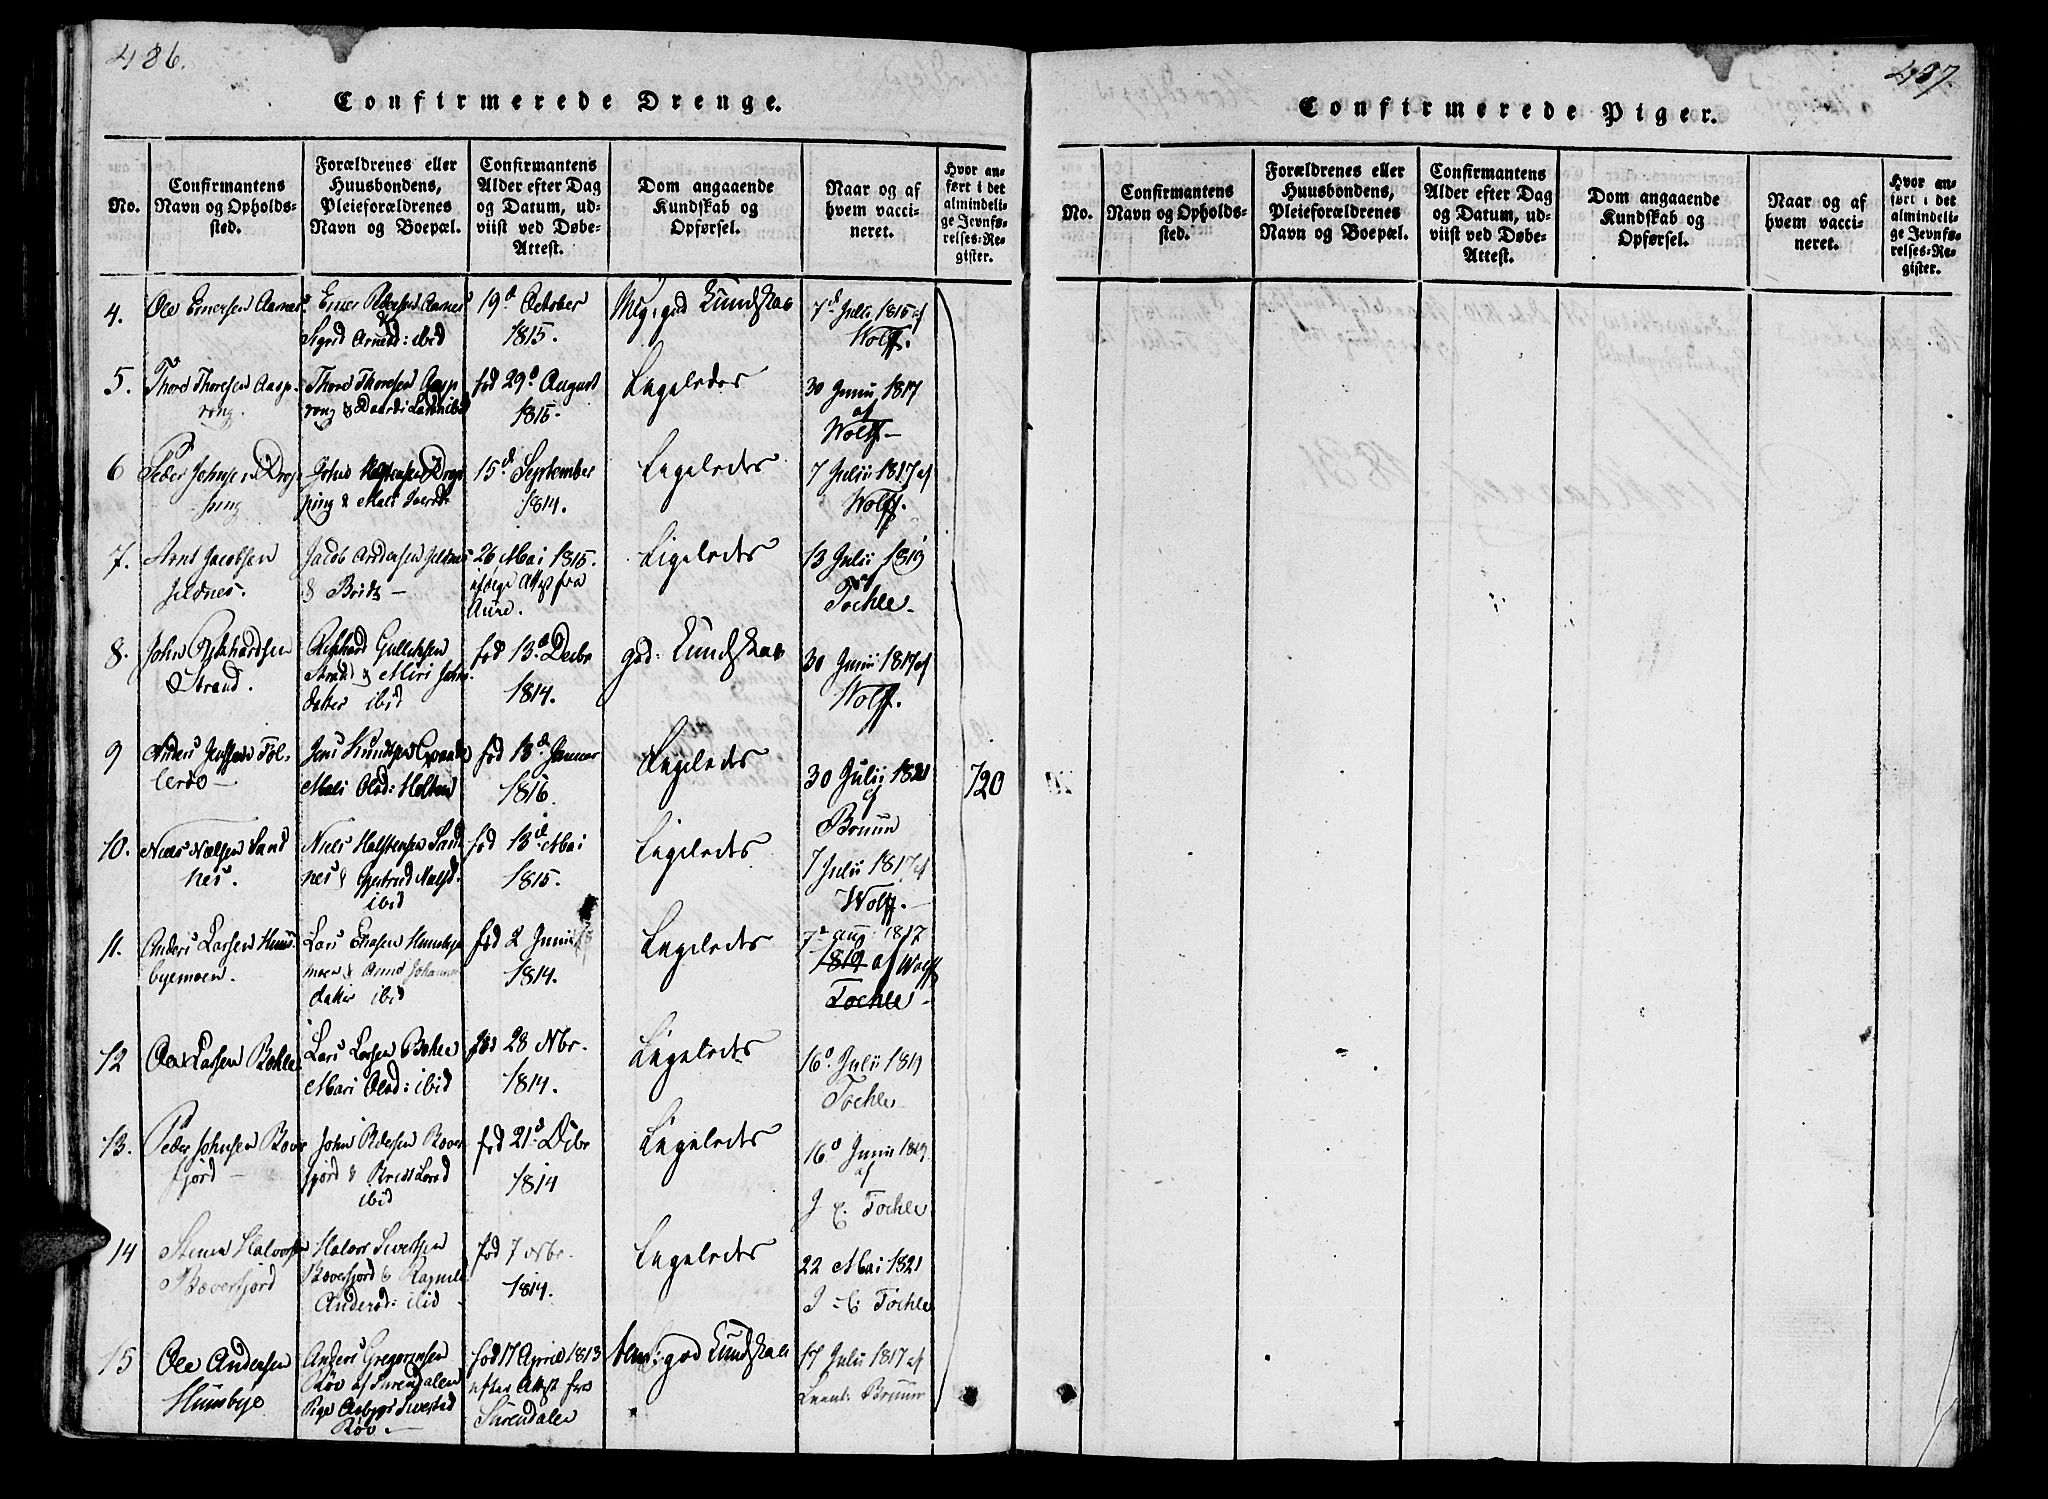 486.
Confirmerede Drenge.
No.
Confirmantens Navn og Opholds-sted.
Forældrenes eller Huusbondens, Pleieforældrenes Navn og Boepæl.
Confirmantens Alder efter Dag og Datum, ud-viist ved Døbe-Attest.
Dom angaaende Kundskab og Opførsel.
Naar og af hvem vacci-neret.
Hvor an-ført i det almindeli-ge Jevnfø-relses-Re-gister.
4. Ole Enersen Aarnes
Ener Pedersen Aarnes
Sigrid Arnesd: ibid
19d October
1815.
Mg: god Kundskab
7d Julii 1815 af
Wolff.
5. Thore Thoresen Aasp
rong.
Thore Thoresen Aasp
rong &
fød 29d August
1815.
Ligeledes
30 Junii 1817
af
Wolff
6 Peder Johnsen Drøp
ping
Drøp
ping & Mali
15d September
1814.
Ligeledes
7 Julii 1817 af
Wolff.
7. Arnt Jacobsen
Jeldnes.
Jacob Andersen Jeldnes
& Brite
26 Mai 1815.
ifølge Attest fra
Aure.
Ligeledes
13 Julii 1819
af
Tochle
8. John
Strand.
Gullichsen
Strand & Mari John
datter ibid
fød 13d Decbr
1814.
god: Kundskab
30 Junii 1817 af
Wolff.
9 Anders Jenssen Tøl-
lerøe
Jens Knudsen
Mali Olsd: Holten
fød 13d Januar
1816.
Ligeledes
30 Julii 1821
af
Bruun
720
10. Niels Nielsen Sand
nes.
Niels Halstensen Sand
nes & Gjertrud Nielsd.
ibid
fød 13d Mai
1815.
Ligeledes
7 Julii 1817 af
Wolff.
11. Anders Larsen Huns
byemoen.
Lars Hunsbye
moen & Anne Johannes
datter ibid
fød 2 Junii
1814.
Ligeledes
7d Aug: 1817
1819 af Wolff
Tochle
12 Ole Larsen Bøhle
Lars Larsen Bøhle
Mari Olsd: ibid
fød 28 Nbr.
1814.
Ligeledes
16d Julii 1819
Tochle
13. Peder Johnsen Bæver
fjord
John Pedersen Bæver
fjord & Brit Larsd
ibid
fød 21d Dcbr
1814
Ligeledes
16d Junii 1819.
af
J C. Tochle
14
Bæverfjord
Halvor Sivertsen
Bæverfjord & Ragnild
Andersd: ibid
fød 7 Nbr.
1814.
Ligeledes
22 Mai 1821
J C: Tochle
15 Ole Andersen
Hunsbye
Anders Gregoriusen
Røv af Surendalen
Pige Sivertsd
Røv.
fød 17 April 1813
efter Attest fra
Surendalen
god Kundskab
17 Julii 1817 af
Bruun
487.
Confirmerede Piger.
No.
Confirmantens Navn og Opholds-sted.
Forældrenes eller Huusbondens, Pleieforældrenes Navn og Boepæl.
Confirmantens Alder efter Dag og Datum, ud-viist ved Døbe-Attest.
Dom angaaende Kundskab og Opførsel.
Naar og af hvem vacci-neret.
Hvor an-ført i det almindeli-ge Jevnfø-relses-Re-gister.